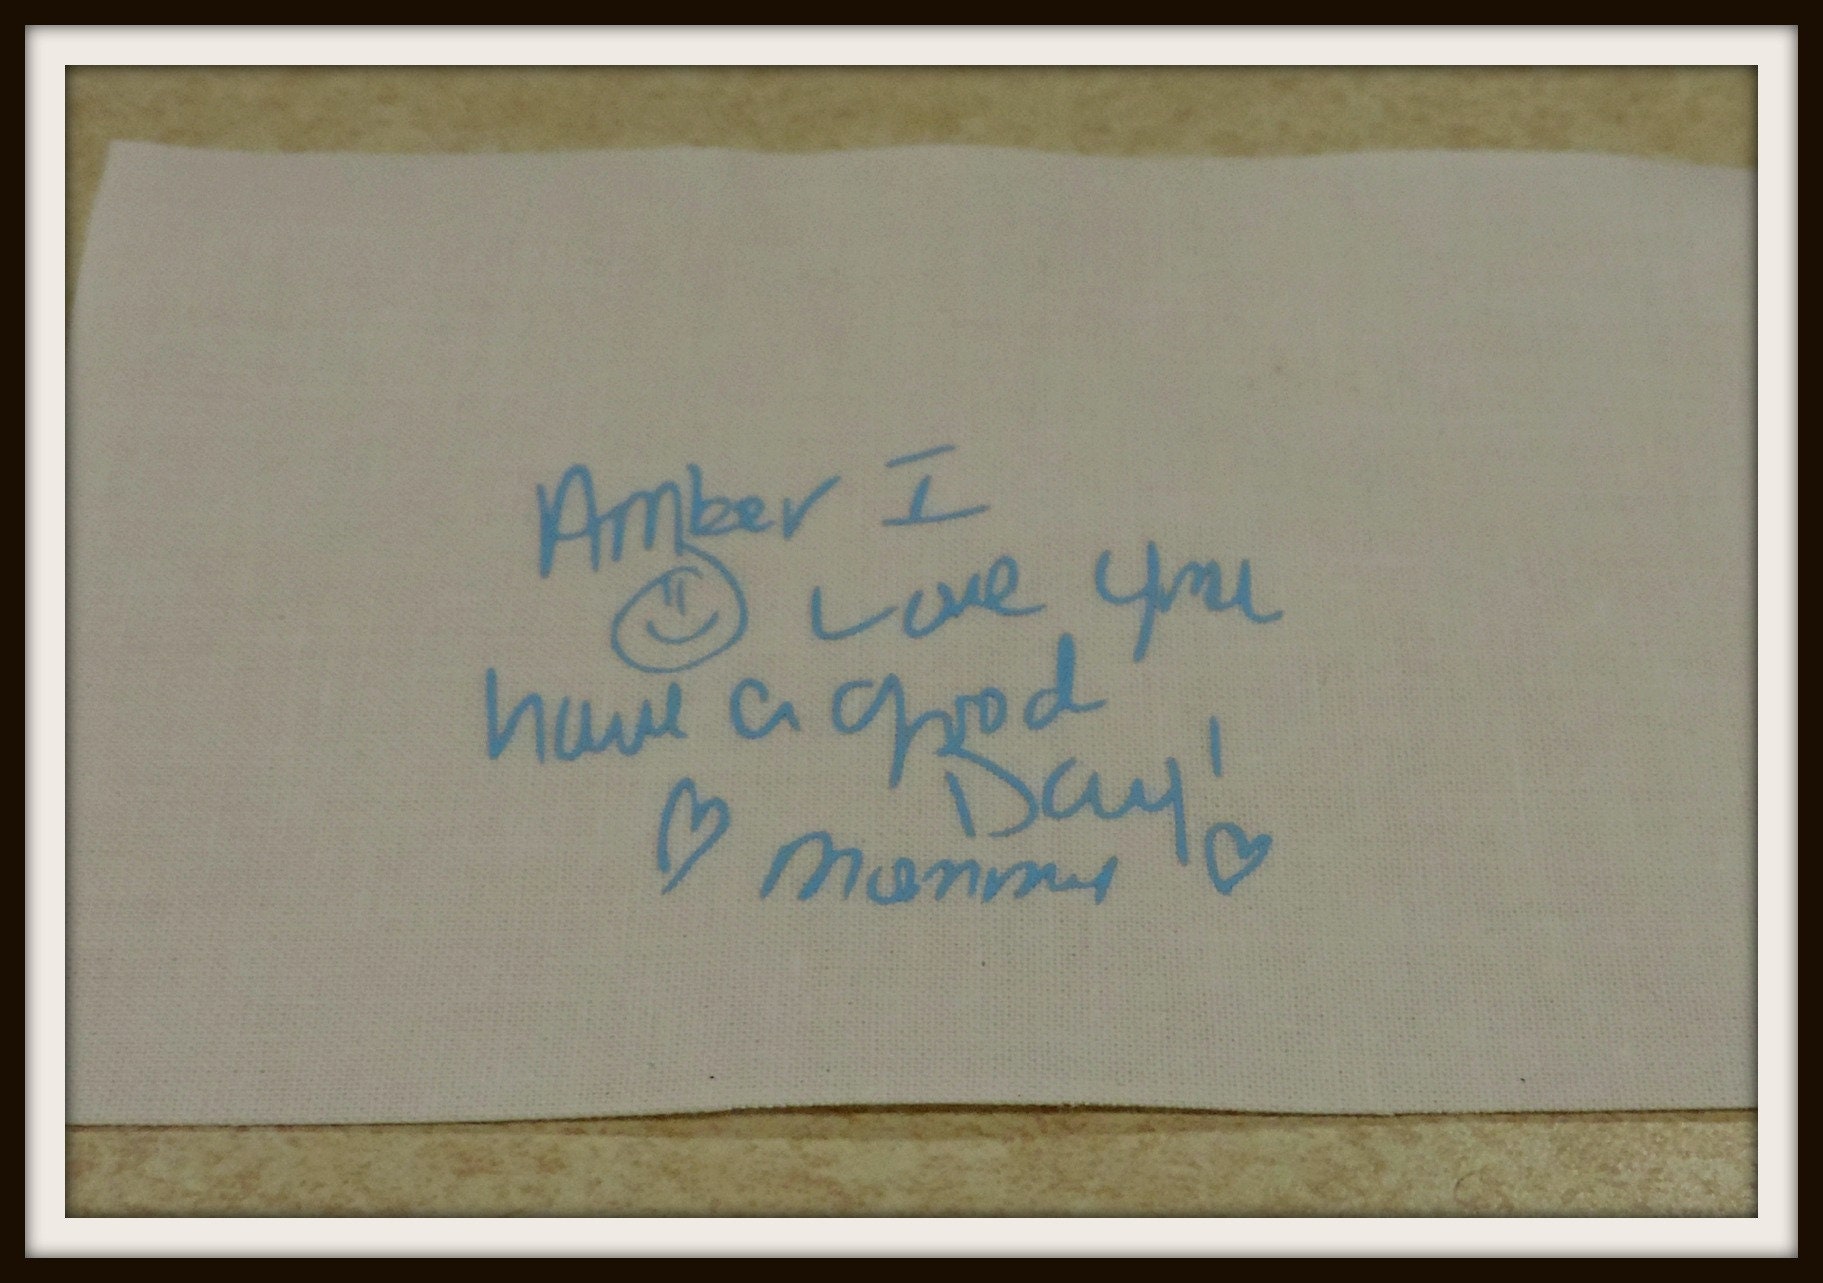 Amber I
Love you
have a good
Day!
Mommy